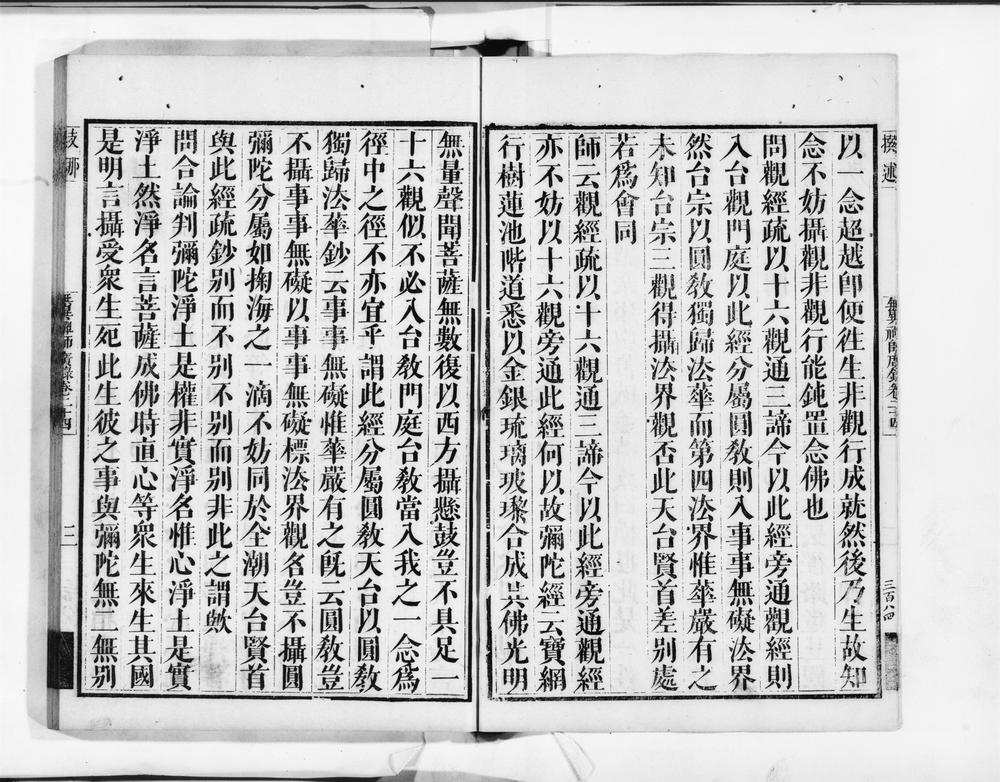 以一念超越卽便徃生非觀行成就然後乃生故知
念不妨攝觀非觀行能鈍置念佛也
問觀經疏以十六觀通三諦今以此經旁通觀經則
入台觀門庭以此經分屬圓敎則入事事無礙法界
然台宗以圓敎獨歸法華而第四法界惟華嚴有之
未知台宗三觀得攝法界觀否此天台賢首差別處
若爲會同
師云觀經疏以十六觀通三諦今以此經旁通觀經
亦不妨以十六觀旁通此經何以故彌陀經云寶網
行樹蓮池階道悉以金銀琉璃玻瓈合成其佛光明
無量聲聞菩薩無數復以西方攝懸鼓豈不具足一
十六觀似不必入台敎門庭台敎當入我之一念爲
徑中之徑不亦宜乎謂此經分屬圓敎天台以圓敎
獨歸法華鈔云事事無礙惟華嚴有之旣云圓敎豈
不攝事事無礙以事事無礙標法界觀名豈不攝圓
彌陀分屬如掬海之一滴不妨同於全潮天台賢首
與此經疏鈔別而不別不別而別非此之謂歟
問合論判彌陀淨土是權非實淨名惟心淨土是實
淨土然淨名言菩薩成佛時直心等衆生來生其國
是明言攝受衆生死此生彼之事與彌陀無相無別
三百八四
二